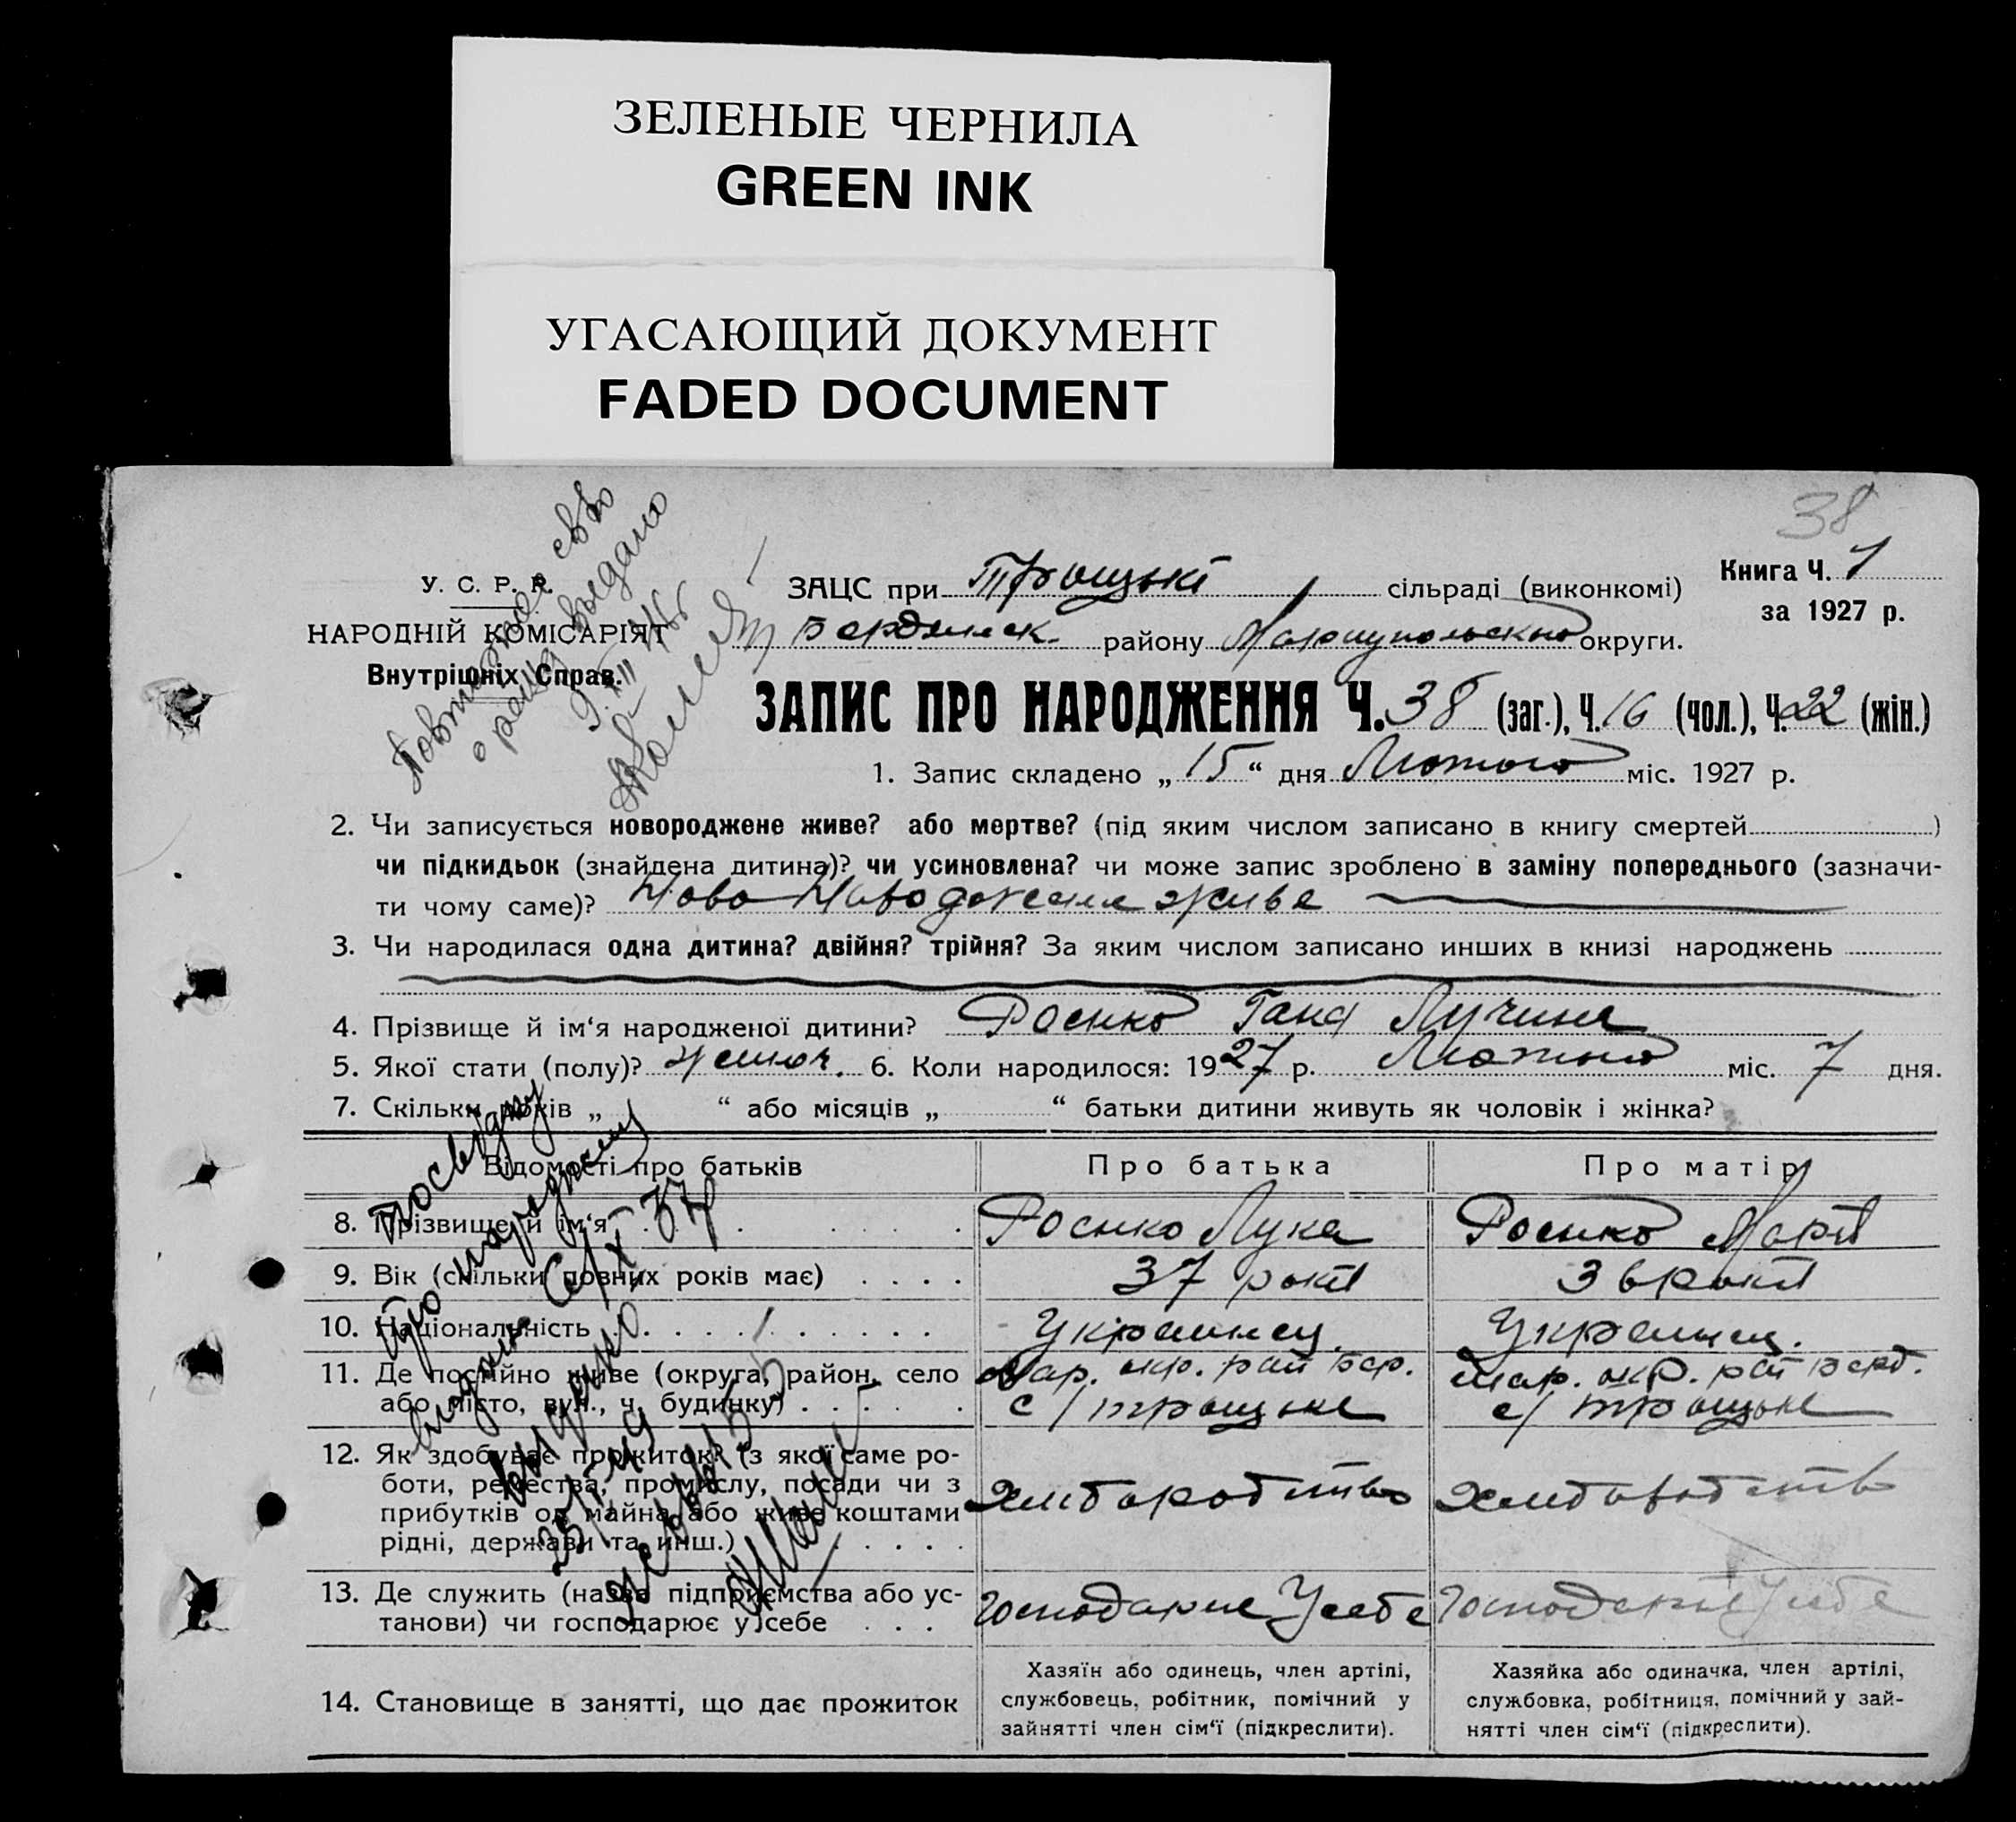 ЗЕЛЕНЫЕ ЧЕРНИЛА
GREEN INK
УГАСАЮЩИЙ ДОКУМЕНТ
FADED DOCUMENT
38
Повторное св-во
о рожд выдано
У. С. Р. Р.
НАРОДНІЙ КОМІСАРІЯТ
Внутрішніх Справ.
ЗАЦС при Троцькі сільраді (виконкомі)
Бердянск. району Маріупольскно округи.
Книга Ч. 1
за 1927 р.
ЗАПИС ПРО НАРОДЖЕННЯ Ч. 38 (заг.), Ч. 16 (чол.), Ч. 22 (жін.)
1. Запис складено „ 15 “ дня Лютого міс. 1927 р.
2. Чи записується новороджене живе? або мертве? (під яким числом записано в книгу смертей )
чи підкидьок (знайдена дитина)? чи усиновлена? чи може запис зроблено в заміну попереднього (зазначи-
ти чому саме)? Ново Народжене живе
3. Чи народилася одна дитина? двійня? трійня? За яким числом записано инших в книзі народжень
4. Прізвище й ім‘я народженої дитини? Роєнко Гана Лучина
5. Якої стати (полу)? жиноч. 6. Коли народилося: 1927 р. Лютого міс. 7 дня.
7. Скільки років „ “ або місяців „ “ батьки дитини живуть як чоловік і жінка?
посвідку
про народження
видано 6/X 37р
выдано
Відомості про батьків Про батька Про матір
8. Прізвище й ім‘я Роєнко Лука Роєнко Марія
9. Вік (скільки повних років має) 37 років 36 років
10. Національність Украинец. Украинец.
11. Де постійно живе (округа, район, село
або місто, вул., ч. будинку)
Мар. окр. рай Бер.
с/ троцьке
Мар. окр. рай Берд.
с/ троцьке
12. Як здобуває прожиток? (з якої саме ро-
боти, ремества, промислу, посади чи з
прибутків од майна, або живе коштами
рідні, держави та инш.)
Хлиборобство
Хлиборобство
13. Де служить (назва підприємства або ус-
танови) чи господарює у себе
Господарне У себе
Господарне У себе
14. Становище в занятті, що дає прожиток
Хазяїн або одинець, член артілі,
службовець, робітник, помічний у
зайнятті член сім‘ї (підкреслити).
Хазяйка або одиначка, член артілі,
службовка, робітниця, помічний у зай-
нятті член сім‘ї (підкреслити).